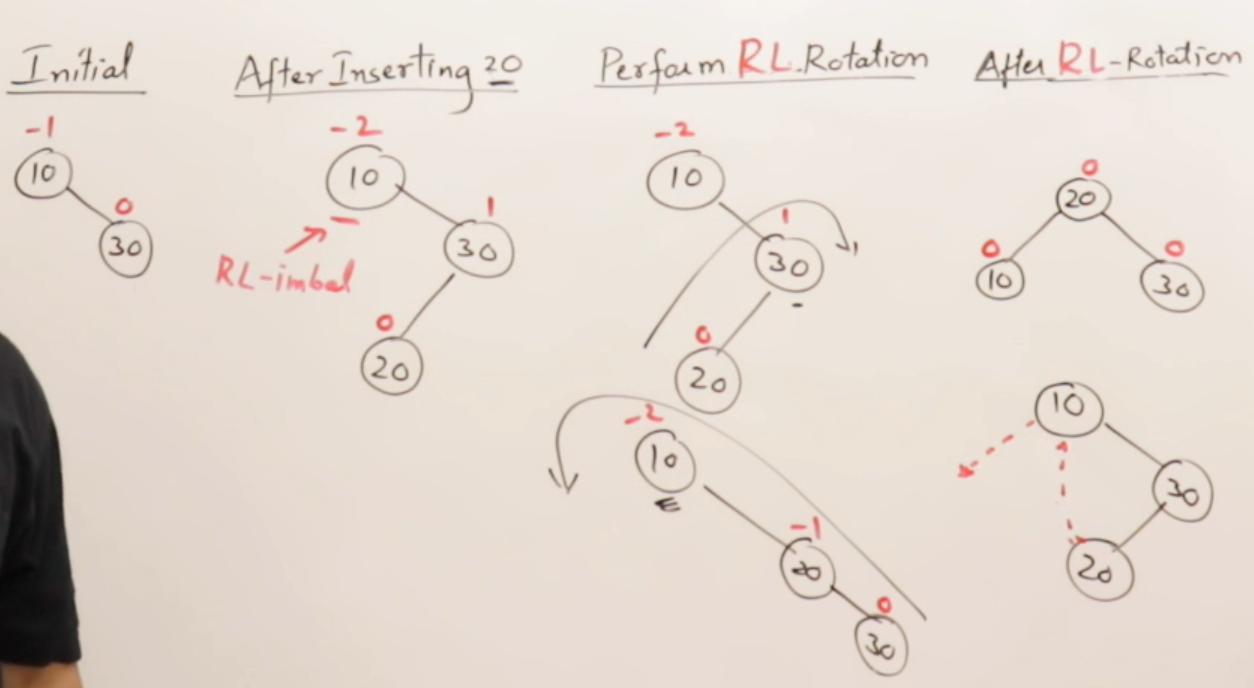 Initial
-1
10
0
30
After Inserting 20
-2
10
1
30
RL-imbal
0
20
Perform RL-Rotation
-2
10
1
30
0
20
-2
10
-1
20
0
30
After RL-Rotation
0
20
0
10
0
30
10
30
20